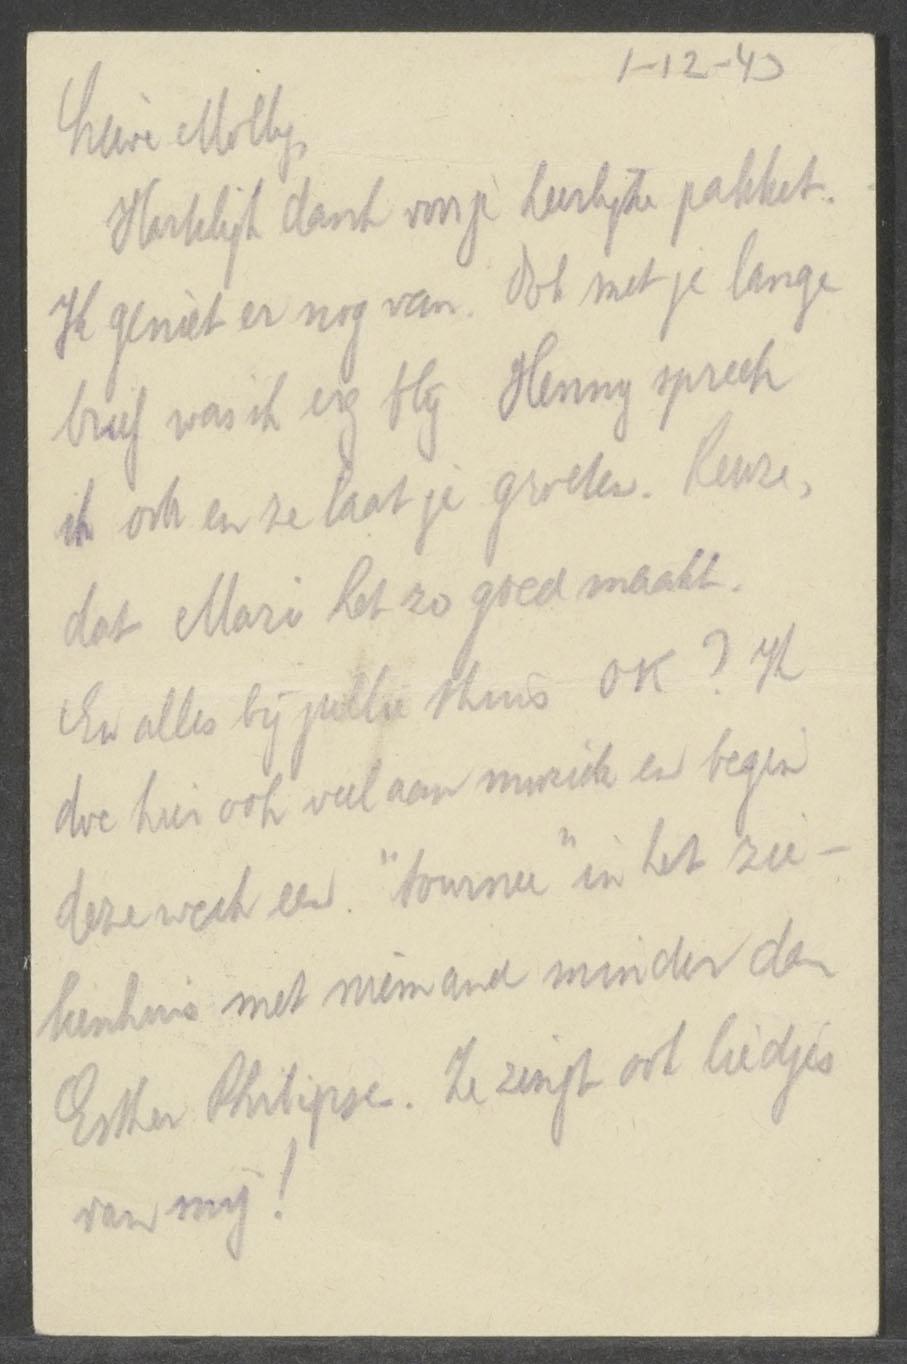 1-12-43
Lieve Molly,
Hartelijk dank voor je heerlijke pakket.
Ik geniet er nog van. Ook met je lange
brief was ik erg blij Henny spreek
ik ook en ze laat je groeten. Reuze,
dat Mari het zo goed maakt.
En alles bij jullie thuis OK? Ik
doe hier ook veel aan muziek en begin
deze week een "tournee" in het zie-
kenhuis met niemand minder dan
Esther Philipse. Ze zingt ook liedjes
van mij!